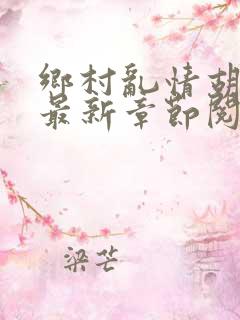 鄉村亂情胡
最新章節閱
梁芒